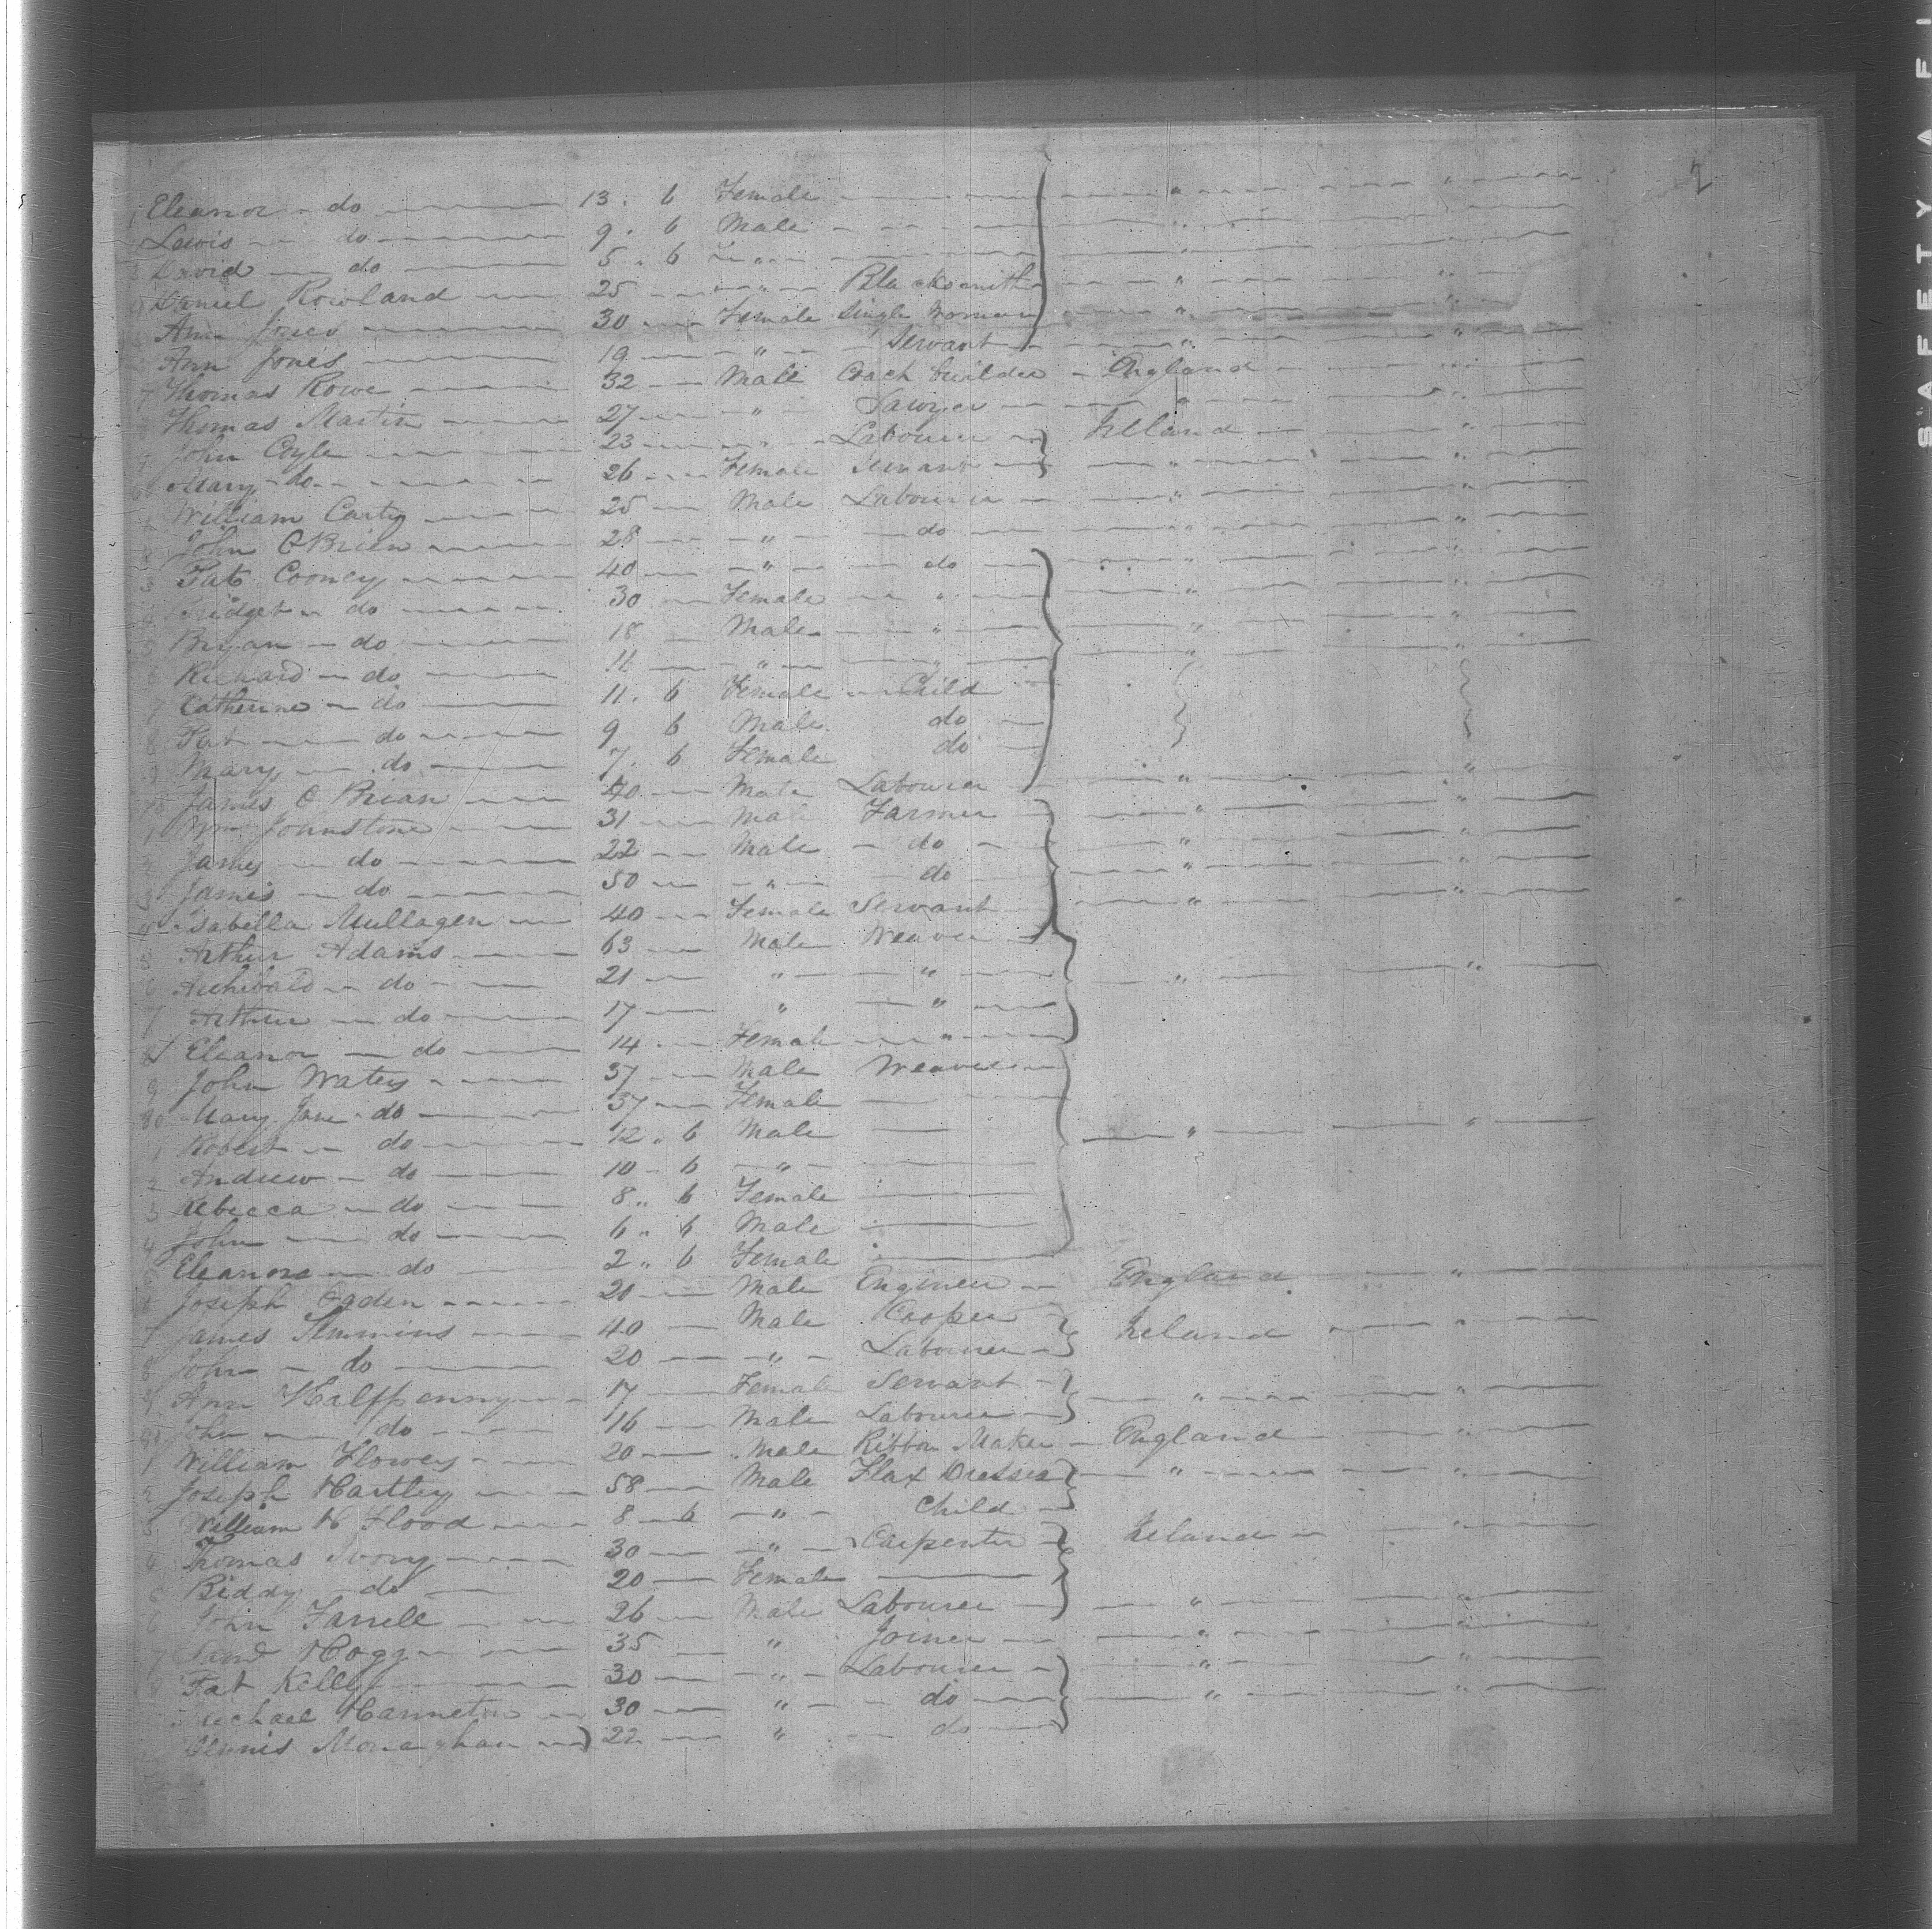 2
1 Eleanor - do 13. 6 Female "
Lewis do 9. 6 Male "
3 David do 5. 6 " "
4 Daniel Rowland 25 " Blacksmith "
Ann 30 Female Single Woman "
Ann Jones 19 " Servant "
7 Thomas Rowe 32 Male Coach builder England "
Thomas Martin 27 " Sawyer "
John Coyle 23 " Labourer Ireland "
Mary do 26 Female Servant "
William Carty 25 Male Labourer "
John O'Brien 28 " do "
3 Pat Cooney 40 " do "
4 Bridget do 30 Female " "
5 Bryan do 18 Male " "
6 Richard do 11 " " "
7 Catherine do 11. 6 Female Child
8 Pat do 9 6 Male do
9 Mary do 7. 6 Female do
James O Brian 40 Male Labourer "
1 Wm Johnstone 31 Male Farmer "
2 James do 22 Male do "
3 James do 50 " do "
4 Isabella Mullagen 40 Female Servant "
5 Arthur Adams 63 Male Weaver
6 Archibald do 21 " " "
7 Arthur do 17 " "
8 Eleanor do 14 Female "
9 John Waters 37 Male Weaver
30 Mary Jane do 37 Female
1 Robert do 12. 6 Male "
2 Andrew do 10 - 6 "
3 Rebecca do 8 " 6 Female
4 John do 6 " 6 Male
5 Eleanora do 2 " 6 Female
6 Joseph Ogden 20 Male Engineer England "
7 James Simmins 40 Male Cooper Ireland "
8 John do 20 " Labourer
9 Ann Halfpenny 17 Female Servant "
40 John do 16 Male Labourer
1 William Flowers 20 Male Ribbon Maker England "
2 Joseph Hartley 58 Male Flax Dresser "
3 William H Flood 8 - 6 " Child
4 Thomas Ivory 30 " Carpenter Ireland "
5 Biddy do 20 Female
6 John Farrell 26 Male Labourer "
7 Hogg 35 " Joiner "
8 Pat Kelly 30 " Labourer "
Michael 30 " do "
Dennis Monaghan 22 " do
SAFETY